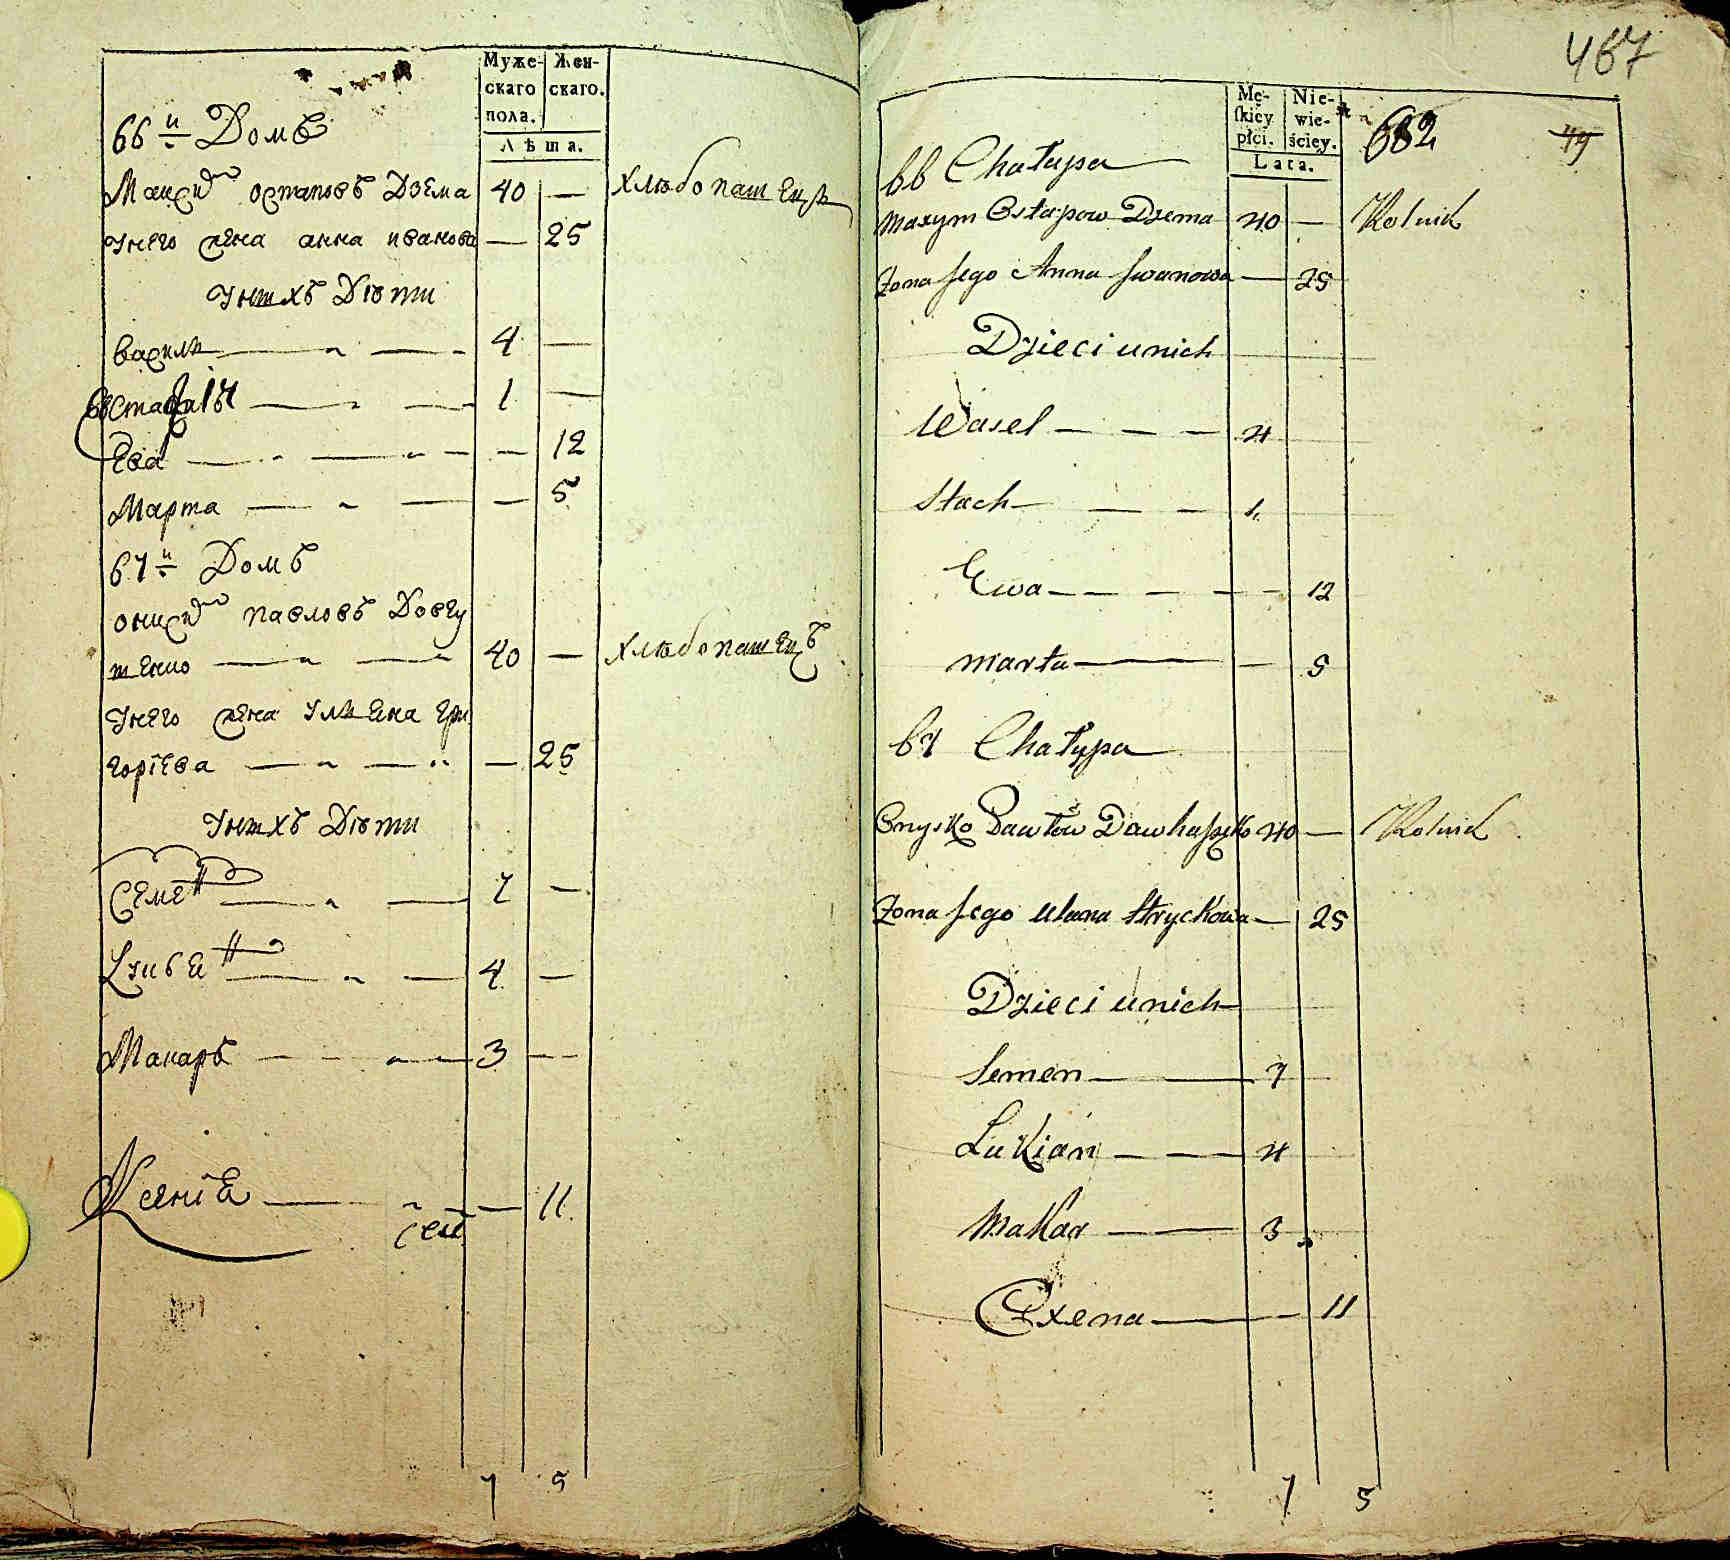 Муже- Жен-
скаго скаго.
пола.
Лѣта.
66й Домъ
Максим остаповъ Дзема 40 — хлѣбопашець
Унего жена анна иванова — 25
Унихъ Дѣти
василь — 4 —
Евстафій — 1 —
Ева — — 12
Марта — — 5
67й Домъ
онисим павловъ Довгу
шенко — 40 — хлѣбопашецъ
Унего жена Улиена гри
горіева — — 25
Унихъ Дѣти
Семен — 7 —
— 4 —
Макаръ — 3 —
Ксенія — — 11
7 5
467
Mę- Nie-
skiey wie-
płci. ściey.
Lata.
682 49
66 Chałupa
Maxym Ostapow Dzema 40 — Rolnik
Zona Jego Anna Jwanowa — 25
Dzieci unich
Wasel — — — 4
Stach — — — 1.
Ewa — — — — — 12
Marta — — 5
67 Chałupa
Onysko Pawłów 40 — Rolnik
Zona Jego Ulana Hryckowa — 25
Dzieci unich
Semen — — 7
Lukian — — 4
Makar — 3
Oxena — — 11
7 5